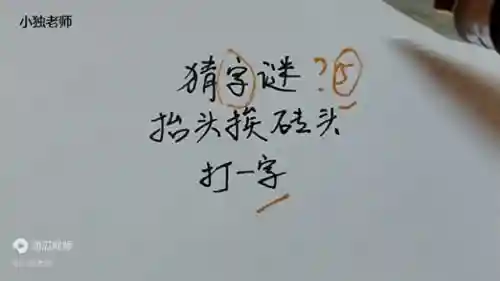 小独老师
猜字谜?5
抬头挨砖头
打一字